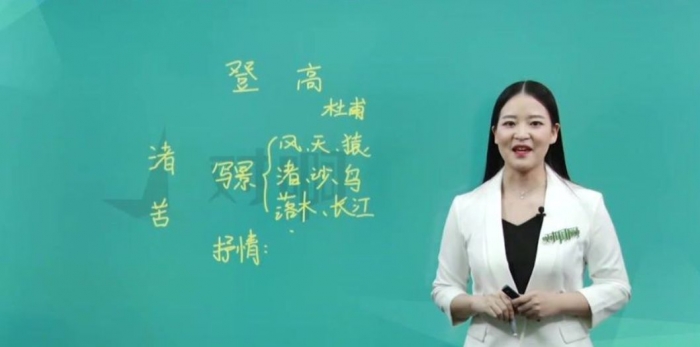 登高
杜甫
渚
苦
写景
风、天、猿、
渚、沙、鸟
落木、长江
抒情：